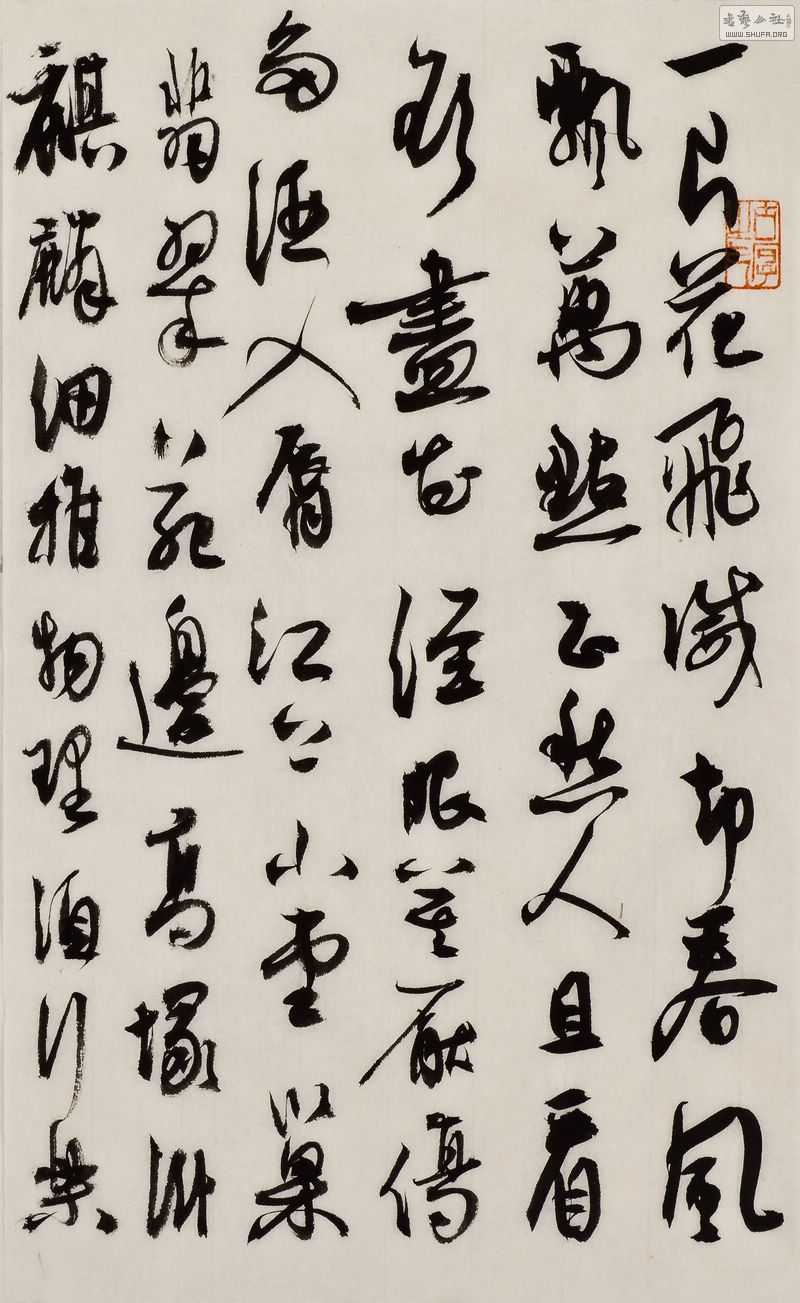 一片花飛減却春風
飄萬點正愁人且看
欲盡花經眼莫厭傷
多酒入脣江上小堂巢
翡翠苑邊高塚臥
麒麟細推物理須行樂
書藝公社
WWW.SHUFA.ORG